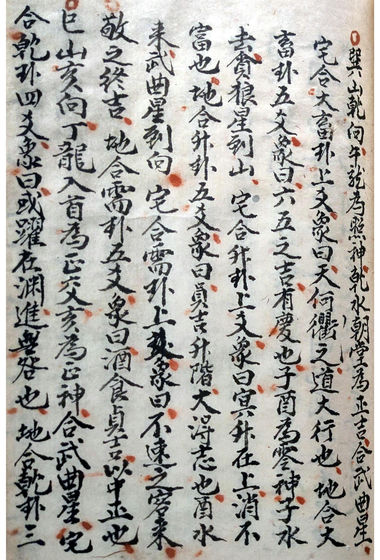 巽山乾向午龍為照神乾水朝堂為正吉合武曲星
宅合大富卦上爻象曰天何衢之道大行也地合大
富卦五爻象曰六五之吉有慶也子酉為零神子水
去貪狼星到山宅合升卦上爻象曰冥升在上消不
富也地合升卦五爻象曰貞吉升階大得志也酉水
来武曲星到向宅合需卦上爻象曰不速之客来
敬之終吉地合需卦五爻象曰酒食貞吉以中正也
巳山亥向丁龍入首為正交亥為正神合武曲星宅
合乾卦四爻象曰或躍在淵進無咎也地合乾卦二